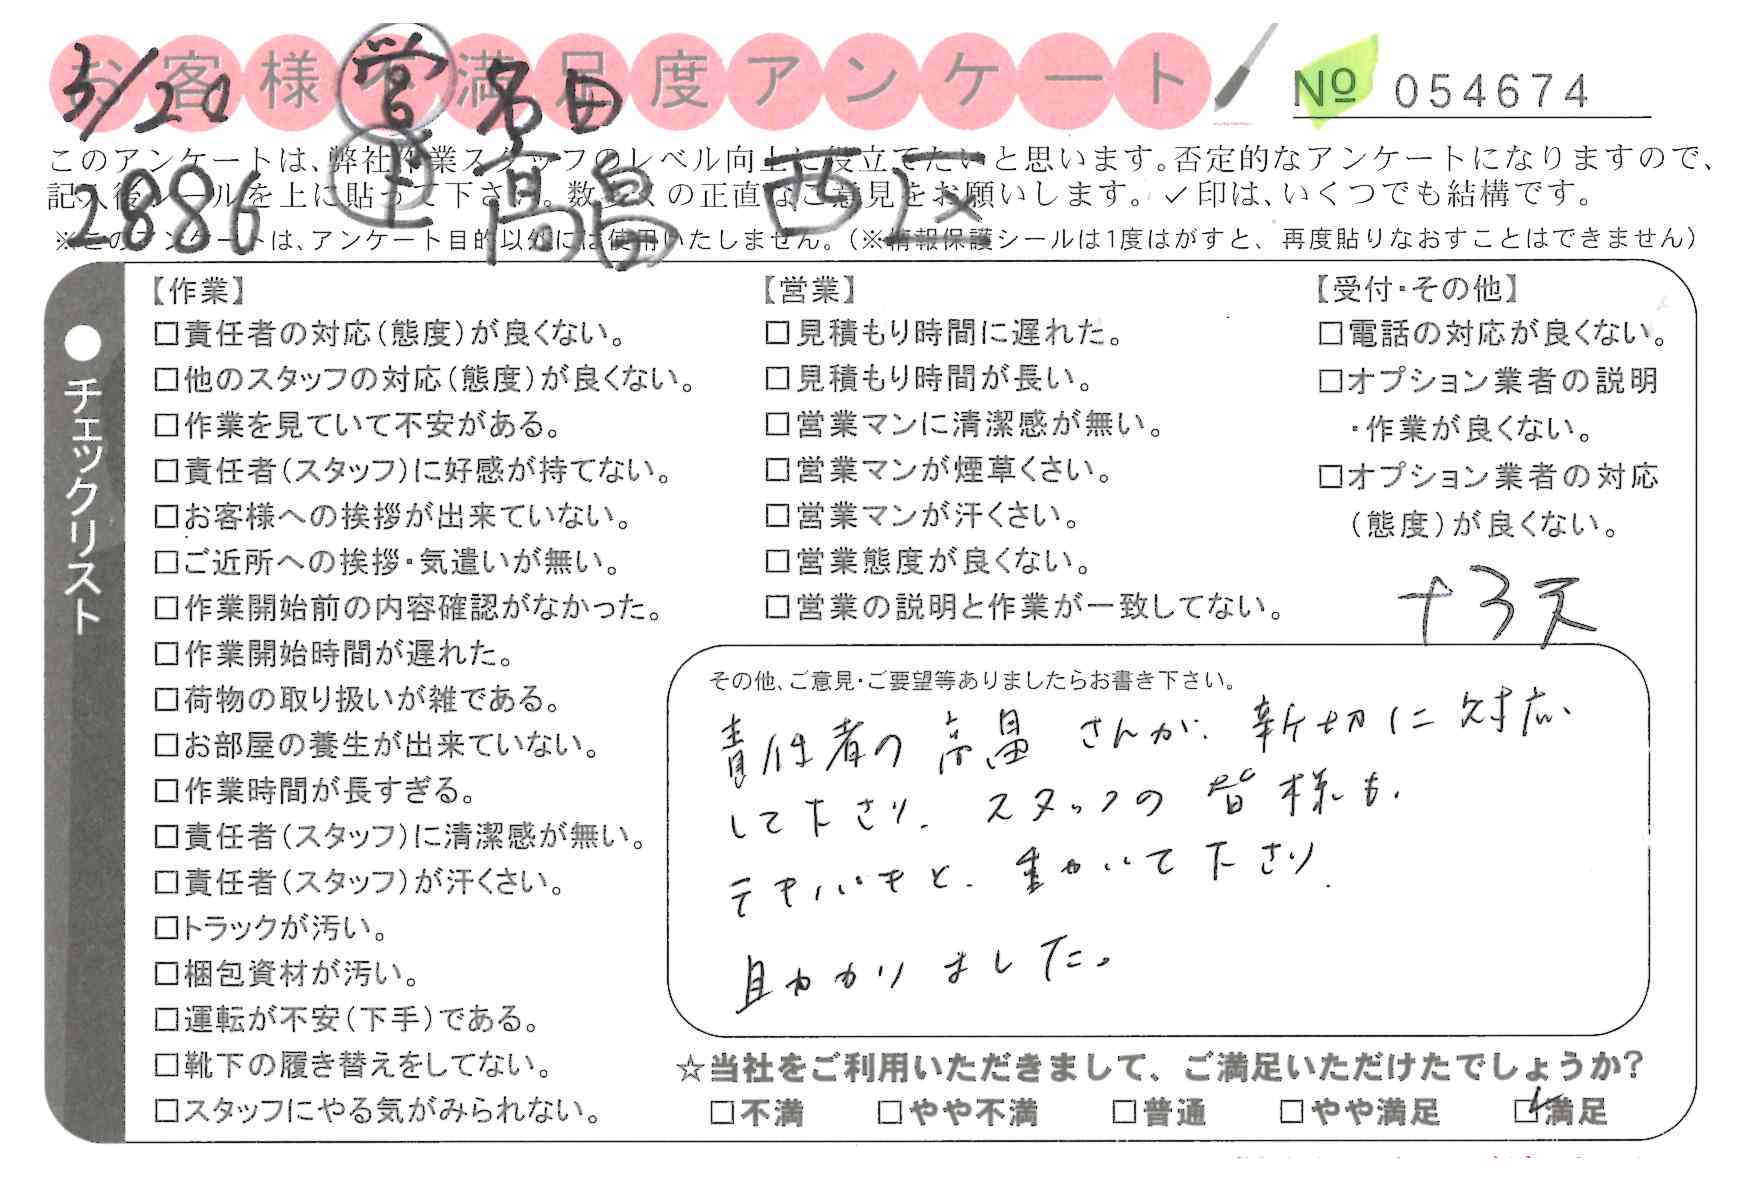 お客様不満足度アンケート
№ 054674
3/20 営 名田
2886 上 高畠 西区
このアンケートは、弊社作業スタッフのレベル向上に役立てたいと思います。否定的なアンケートになりますので、
記入後シールを上に貼って下さい。数多くの正直なご意見をお願いします。✓印は、いくつでも結構です。
※このアンケートは、アンケート目的以外には使用いたしません。(※情報保護シールは1度はがすと、再度貼りなおすことはできません)
●チェックリスト
【作業】
□責任者の対応(態度)が良くない。
□他のスタッフの対応(態度)が良くない。
□作業を見ていて不安がある。
□責任者(スタッフ)に好感が持てない。
□お客様への挨拶が出来ていない。
□ご近所への挨拶・気遣いが無い。
□作業開始前の内容確認がなかった。
□作業開始時間が遅れた。
□荷物の取り扱いが雑である。
□お部屋の養生が出来ていない。
□作業時間が長すぎる。
□責任者(スタッフ)に清潔感が無い。
□責任者(スタッフ)が汗くさい。
□トラックが汚い。
□梱包資材が汚い。
□運転が不安(下手)である。
□靴下の履き替えをしてない。
□スタッフにやる気がみられない。
【営業】
□見積もり時間に遅れた。
□見積もり時間が長い。
□営業マンに清潔感が無い。
□営業マンが煙草くさい。
□営業マンが汗くさい。
□営業態度が良くない。
□営業の説明と作業が一致してない。
【受付・その他】
□電話の対応が良くない。
□オプション業者の説明
・作業が良くない。
□オプション業者の対応
(態度)が良くない。
+3天
その他、ご意見・ご要望等ありましたらお書き下さい。
責任者の高畠さんが、親切に対応
して下さり、スタッフの皆様も、
テキパキと、動いて下さり、
助かりました。
☆当社をご利用いただきまして、ご満足いただけたでしょうか?
□不満 □やや不満 □普通 □やや満足 ☑満足